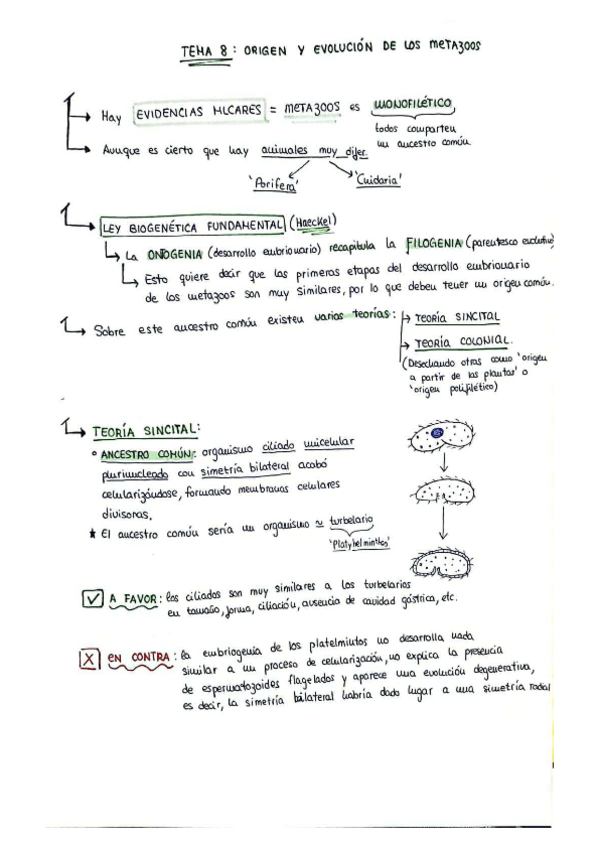 TEMA 8: ORIGEN Y EVOLUCIÓN DE LOS METAZOOS
Hay EVIDENCIAS MLCARES = METAZOOS es MONOFILÉTICO,
todos comparten
un ancestro común
Aunque es cierto que hay animales muy difer.
'Porifera' 'Cnidaria'
LEY BIOGENÉTICA FUNDAMENTAL (Haeckel)
La ONTOGENIA (desarrollo embrionario) recapitula la FILOGENIA (parentesco evolutivo)
Esto quiere decir que las primeras etapas del desarrollo embrionario
de los metazoos son muy similares, por lo que deben tener un origen común.
Sobre este ancestro común existen varias teorías: TEORÍA SINCITAL
TEORÍA COLONIAL.
(Desechando otras como 'origen
a partir de las plantas' o
'origen polifilético)
TEORÍA SINCITAL:
ANCESTRO COMÚN: organismo ciliado unicelular
plurinucleado con simetría bilateral acabó
celularizándose, formando membranas celulares
divisoras.
* El ancestro común sería un organismo ≈ turbelario
'Platyhelminthes'
A FAVOR: los ciliados son muy similares a los turbelarios
en tamaño, forma, ciliación, ausencia de cavidad gástrica, etc.
X EN CONTRA: la embriogenia de los platelmintos no desarrolla nada
similar a un proceso de celularización, no explica la presencia
de espermatozoides flagelados y aparece una evolución degenerativa,
es decir, la simetría bilateral habría dado lugar a una simetría radial